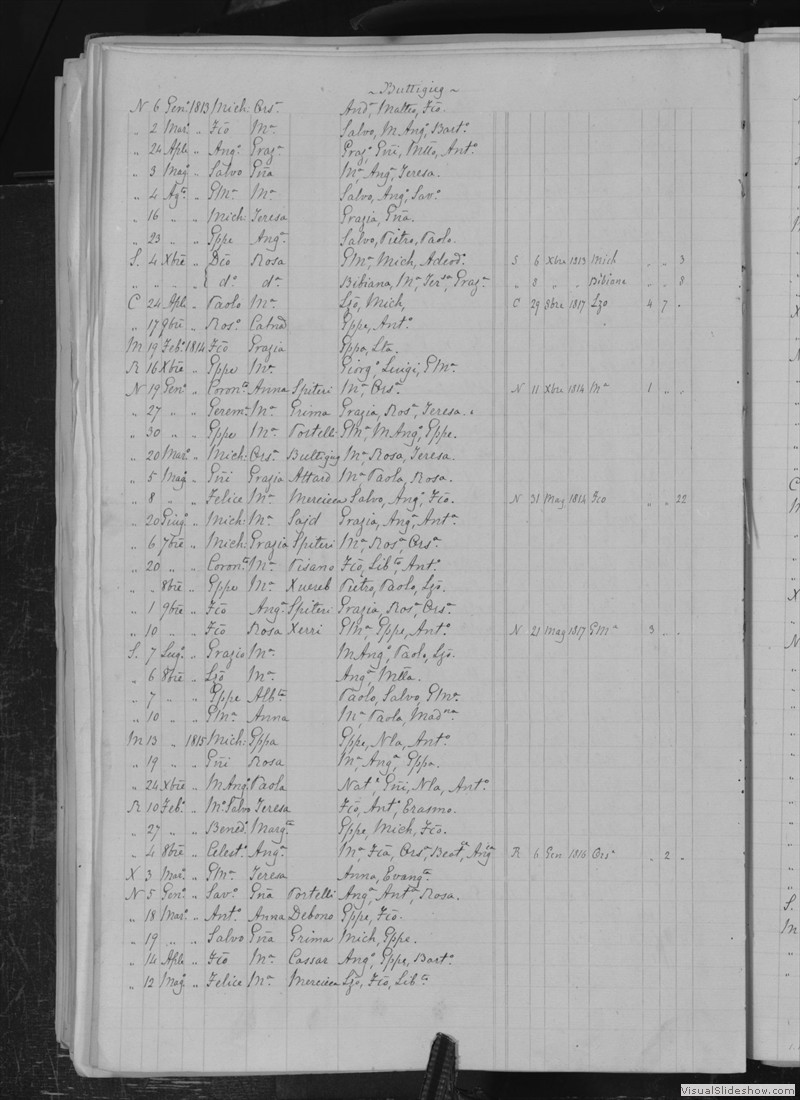 ~ Buttigieg ~
N 6 Genº 1813 Mich: Orsª Andª, Matteo, Fcõ.
„ 2 Marº „ Fcõ Mª Salvo, M Angº, Bartº
„ 24 Aple „ Angº Grazª Grazª, Gñi, Mttõ, Antº
„ 3 Magº „ Salvo Gña Mª Angª, Teresa.
„ 4 Agtº „ GMª Mª Salvo, Angº, Savº
„ 16 „ „ Mich: Teresa Grazia, Gña.
„ 23 „ „ Gppe Angª Salvo, Pietro, Paolo.
S. 4 Xbre „ Dcõ Rosa GMª, Mich, Adeodº S 6 Xbre 1813 Mich „ „ 3
„ „ „ „ dº dª Bibiana, Mª, Tersª, Grazª „ 8 „ „ Bibiana „ „ 8
C 24 Aple „ Paolo Mª Lzõ, Mich, C 29 8bre 1817 Lzo 4 7 „
„ 17 9bre „ Rosº Catnª Gppe, Antº
M 19 Febº 1814 Fcõ Grazia Gppa, Lta.
R 16 Xbre „ Gppe Mª Giorgº, Luigi, GMª
N 19 Genº „ Coronto Anna Spiteri Mª, Orsª N 11 Xbre 1814 Mª 1 „ „
„ 27 „ „ Geremª Mª Grima Grazia, Rosª, Teresa.
„ 30 „ „ Gppe Mª Portelli GMª, M Angº, Gppe.
„ 20 Marº „ Mich: Orsª Buttigieg Mª, Rosa, Teresa.
„ 5 Magº „ Gñi Grazia Attard Mª Paola, Rosa.
„ 8 „ „ Felice Mª Mercieca Salvo, Angº, Fcõ. N 31 Mag 1814 Fco „ „ 22
„ 20 Giugº „ Mich: Mª Sajd Grazia, Angª, Antª
„ 6 7bre „ Mich: Grazia Spiteri Mª, Rosª, Orsª
„ 20 „ „ Coronto Mª Pisano Fcõ, Libto, Antº
„ „ 8bre „ Gppe Mª Xuereb Pietro, Paolo, Lzõ.
„ 1 9bre „ Fcõ Angª Spiteri Grazia, Rosª, Orsª
„ 10 „ „ Fcõ Rosa Xerri GMª, Gppe, Antº N 21 Mag 1817 GMª 3 „ „
S. 7 Lugº „ Grazio Mª M Angº, Paolo, Lzõ.
„ 6 8bre „ Lzõ Mª Angª, Mtta.
„ 7 „ „ Gppe Albta Paolo, Salvo, GMª
„ 10 „ „ GMª Anna Mª, Paola, Madna
M 13 „ 1815 Mich: Gppa Gppe, Nla, Antº
„ 19 „ „ Gñi Rosa Mª Angª, Gppa.
„ 24 Xbre „ M Angº Paola Natº, Gñi, Nla, Antº
R 10 Febº „ Mº Salvo Teresa Fcõ, Antº, Erasmo.
„ 27 „ „ Benedº Margta Gppe, Mich, Fcõ.
„ 4 8bre „ Celestº Angª Mª, Fca, Orsª, Beatª, Angª R 6 Gen 1816 Orsª „ 2 „
X 3 Marº „ GMª Teresa Anna, Evangta
N 5 Genº „ Savº Gña Portelli Angª, Antª, Rosa.
„ 18 Marº „ Antº Anna Debono Gppe, Fcõ.
„ 19 „ „ Salvo Gña Grima Mich, Gppe.
„ 14 Aple „ Fcõ Mª Cassar Angº, Gppe, Bartº
„ 12 Magº „ Felice Mª Mercieca Lzõ, Fcõ, Libto
VisualSlideshow.com